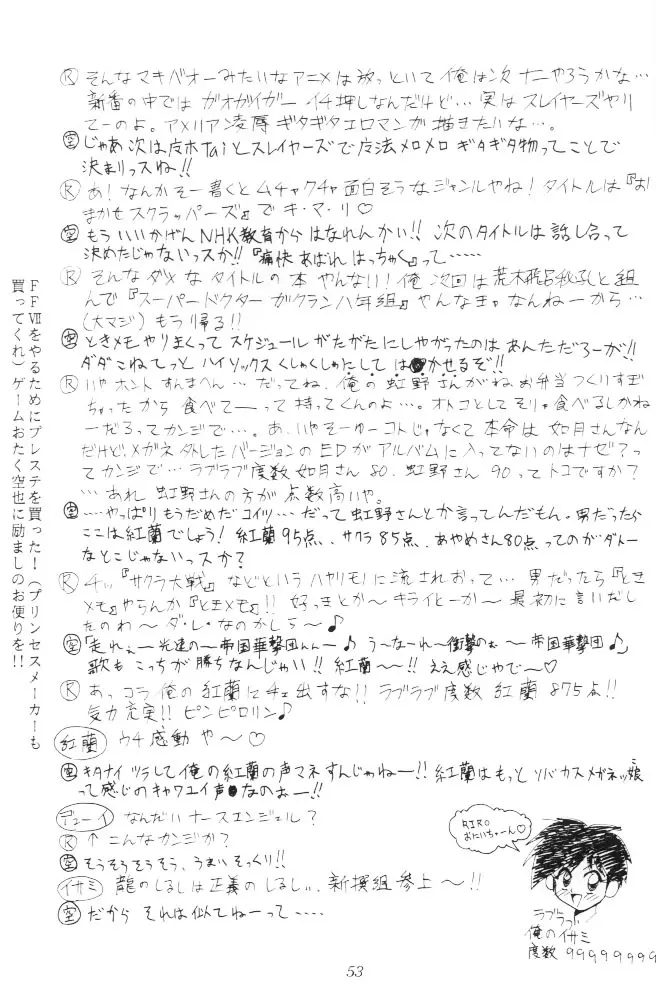 Ⓡ そんなマキバオーみたいなアニメは放っといて俺は次ナニやろうかな…
新番の中では ガオガイガー イチ押しなんだけど… 実は スレイヤーズやり
てーのよ。アメリアン凌辱 ギタギタエロマンが描きたいな…。
空 じゃあ 次は皮ホTaiとスレイヤーズで魔法メロメロ ギタギタ物ってことで
決まりっスね!!
Ⓡ あ! なんか そー書くと ムチャクチャ 面白そうなジャンルやね! タイトルは『お
まかせスクラッパーズ』で キ・マ・リ♡
空 もう いいかげん NHK教育から はなれんかい!! 次のタイトルは 話し合って
決めたじゃないっスか!!『痛快あばれ はっちゃく』って……
Ⓡ そんな ダメな タイトルの 本 やんない! 俺 次回は 荒木 と組
んで『スーパードクター がクラン八年組』やんなきゃ なんねーから…
(大マジ) もう 帰る!!
空 ときメモ やりまくって スケジュール がたがたにしやがったのは あんただろーが!!
ダダこねてっと ハイソックス くしゃくしゃにして は かせるぞ!!
Ⓡ いや ホント すんまへん… だってね、俺の 虹野さんがね お弁当つくりすぎ
ちゃったから 食べてーって 持ってくんのよ…。オトコとして そりゃ 食べるしかね
ーだろってカンジで…。あ、いや そーゆーコトじゃなくて 本命は 如月さんなん
だけど、メガネ外したバージョンのEDが アルバムに 入ってないのは ナゼ?っ
てカンジで… ラブラブ度数 如月さん 80、虹野さん 90ってトコですか?
… あれ 虹野さんの方が 点数高いや。
空 ……やっぱり もうだめだ コイツ… だって 虹野さんとか言ってんだもん。男だったら
ここは紅蘭でしょう! 紅蘭 95点、サクラ 85点、あやめさん 80点ってのが ダトー
なとこじゃないっスか?
Ⓡ 『サクラ大戦』などという ハヤリモノに 流されおって… 男だったら『とき
メモ』やらんか『ときメモ』!! 好っきとか〜 キライとーか〜 最初に 言いだし
たのわ〜 ダ・レ・なのかしら〜♪
空 「走れぇー 光速の〜 帝国華撃団んんー♪ う〜なーれ〜 衝撃のぉ〜 帝国華撃団♪」
歌も こっちが 勝ちなんじゃい!! 紅蘭〜〜!! ええ感じやで〜♡
Ⓡ あっ コラ 俺の 紅蘭に チェ 出すな!! ラブラブ度数 紅蘭 875点!!
気力 充実!! ピンピロリン♪
紅蘭 ウチ 感動 や〜♡
空 キタナイ ツラして 俺の紅蘭の声マネ すんじゃねー!! 紅蘭は もっと ソバカスメガネッ娘
って感じの キャワエイ声 なのぉー!!
デューイ なんだい ナースエンジェル?
Ⓡ ↑ こんなカンジか?
空 そうそうそうそう、うまい そっくり!!
イサミ 龍のしるしは 正義のしるし、新撰組 参上〜!!
空 だから それは 似てねーって……
FFⅦをやるためにプレステを買った!(プリンセスメーカーも
買ってくれ)ゲームおたく空也に励ましのお便りを!!
RIRO
おにいちゃーん♡
ラブラブ
俺のイサミ
度数 99999999
53